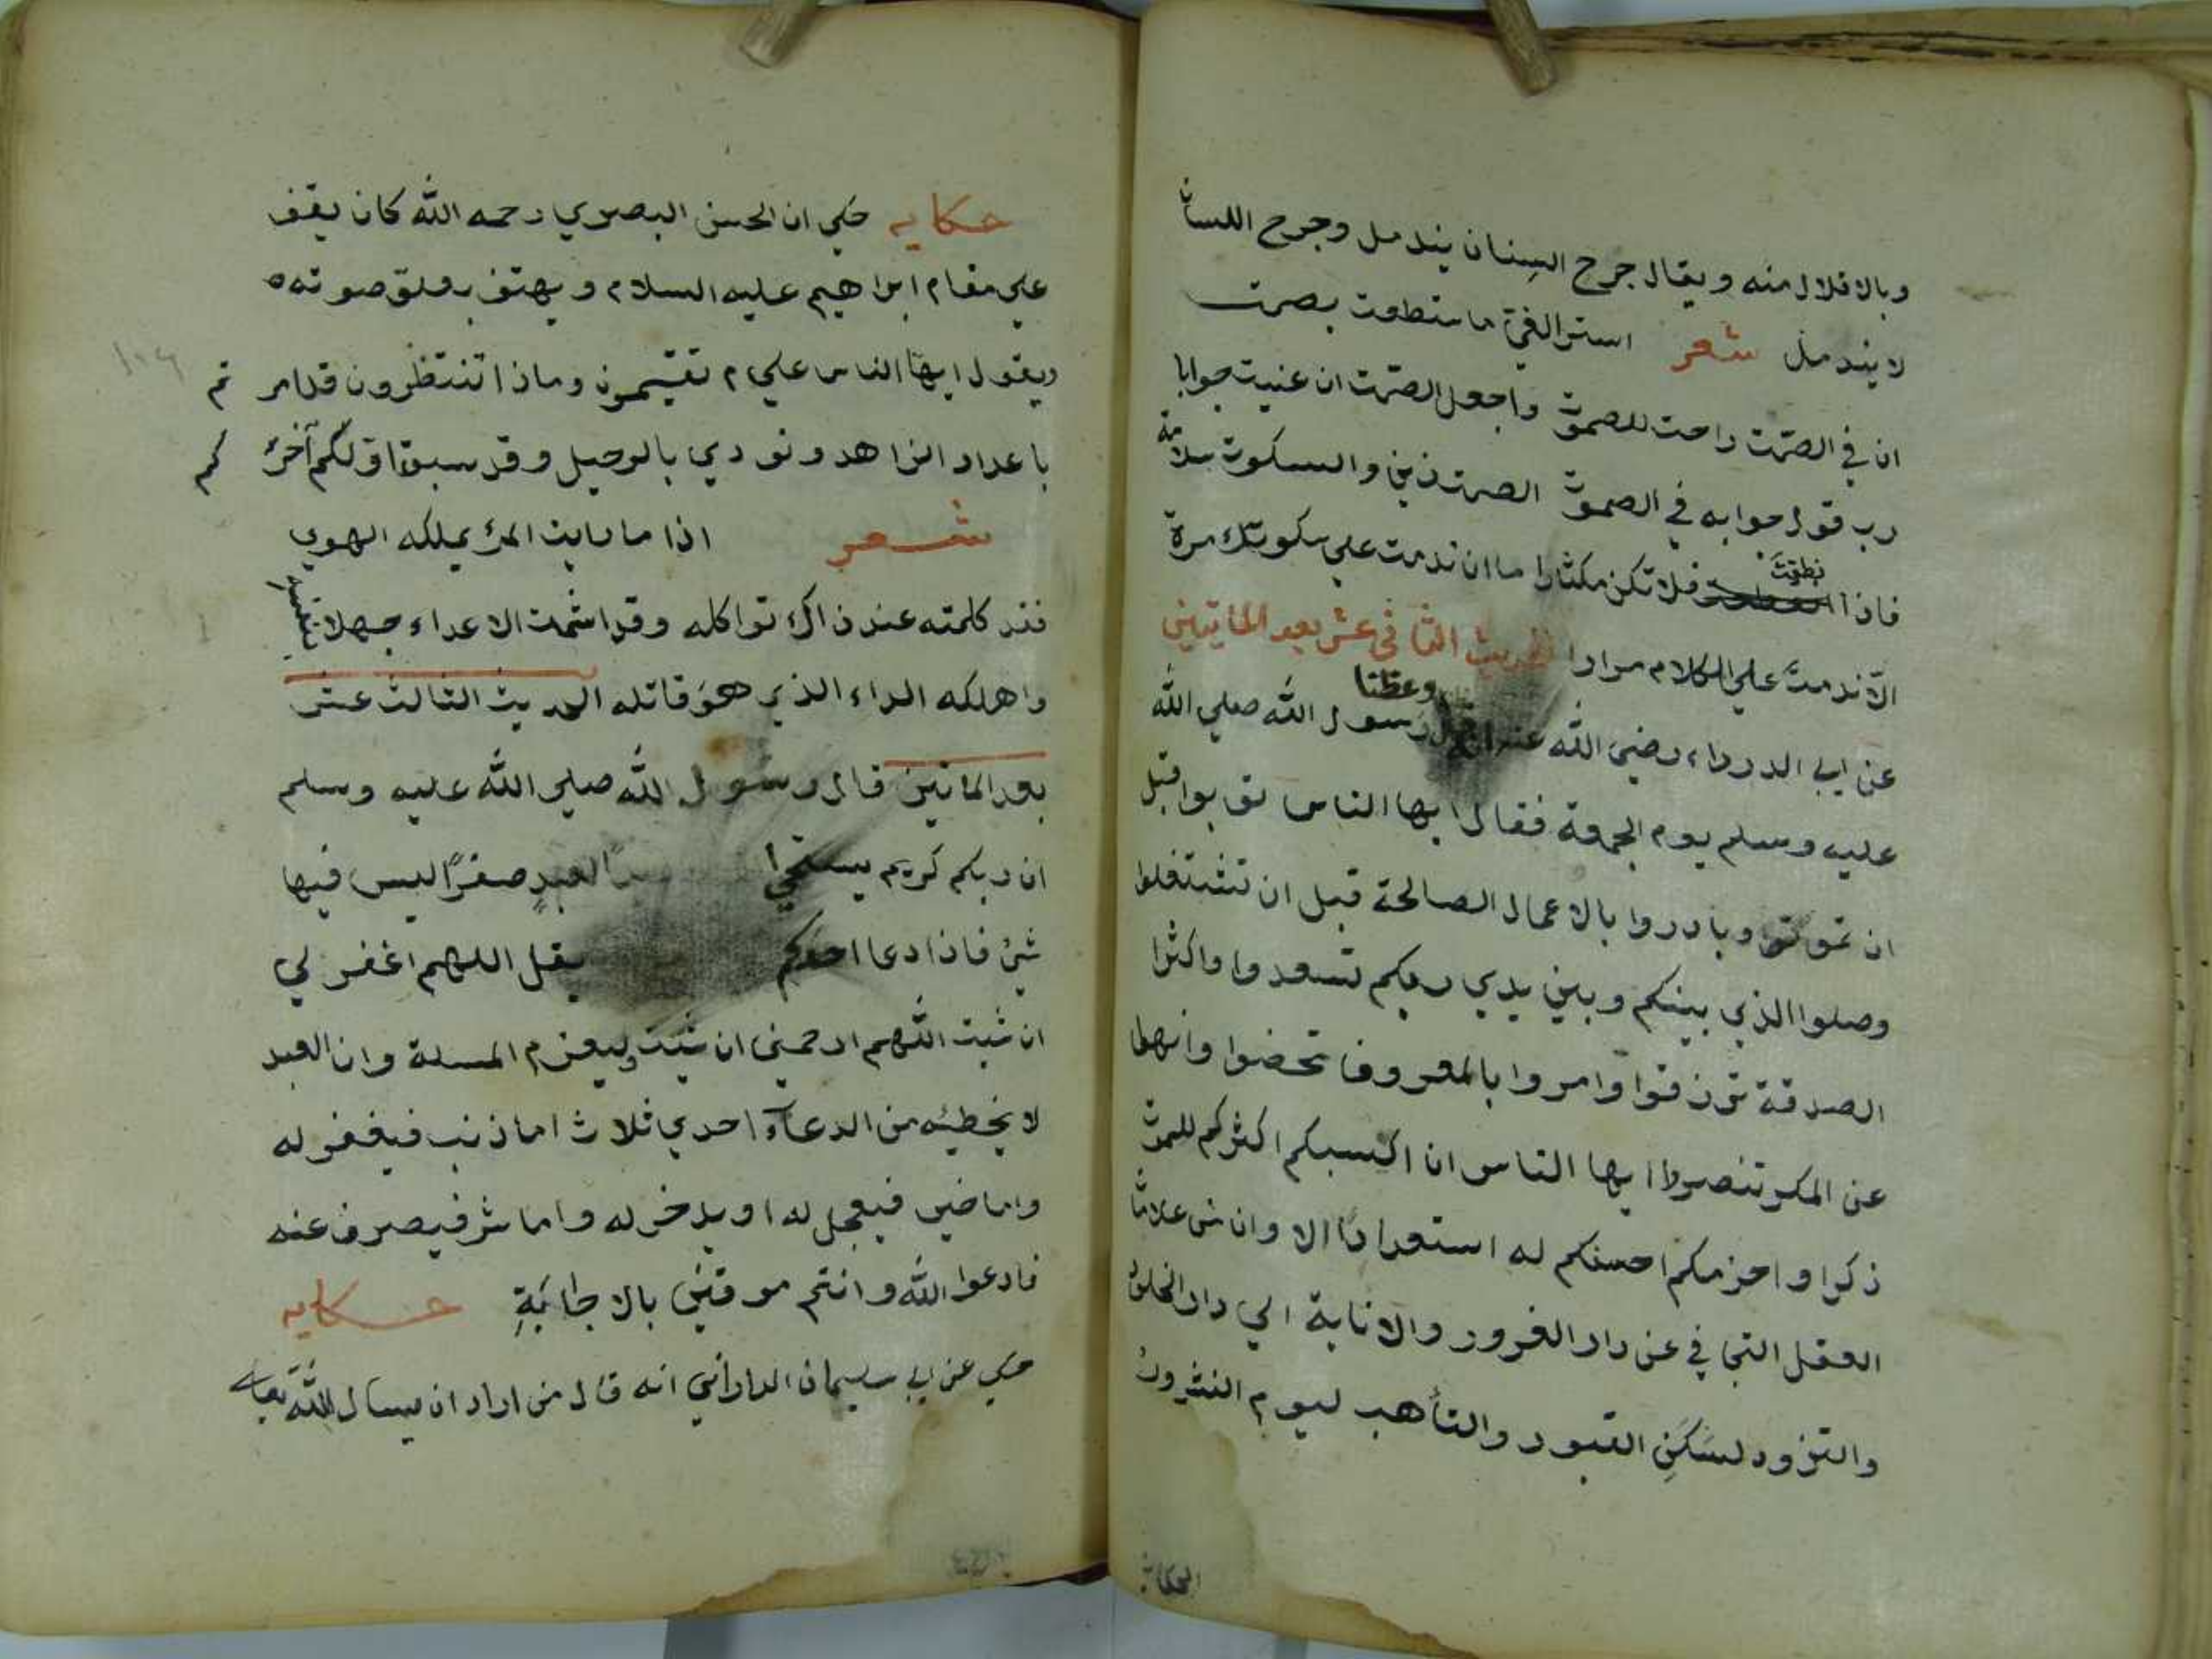 وبالاقلال منه ويقال جرح السِنان يندمل وجرح اللسان
لا يندمل شعر استر الغيّ ما ستطعت بصمت
ان في الصمّت راحت للصموّت واجعل الصمّت ان عنيت جوابا
رب قول جوابه في الصموّت الصمت زين والسكوت سلامة
فاذا نطقتَ فلا تكن مكثارا ما ان ندمت علي سكوتك مرة
الّا ندمتَ علي الكلام مرارا الحديث الثاني عشر بعد المايتين
عن ابي الدرداء رضي الله عنه وعظنا رسول الله صلي الله
عليه وسلم يوم الجمعة فقال ايها الناس توبوا قبل
ان تموتو وبادروا بالاعمال الصالحة قبل ان تشتغلوا
وصلوا الذي بينكم وبين يدي ربكم تسعدوا واكثرا
الصدقة ترزقوا وامروا بالمعروف تحضوا وانهوا
عن المكر تنصروا ايها الناس ان اكيسبكم اكثركم للموت
ذكرا واحزمكم احسنكم له استعدادا الا وان من علامات
العقل التجافي عن دار الغرور والانابة الي دار الخلود
والتزود لسَكَنِ القبور والتأهب ليوم النشرور
الحكاية
حكايه حكي ان الحسن البصري رحمه الله كان يقف
علي مقام ابراهيم عليه السلام ويهتف بعلوّ صوته
ويقول ايها الناس علي م تقيمون وماذا تنتظرون قد امر تم
باعداد الزاهد ونودي بالرحيل وقد سبق اوّلكم آخر كم
شعر اذا ما رايت المرئ يملكه الهوي
فند كلمته عند ذاك تواكله وقد اشمت الاعداء جهلا بنفسه
واهلكه الداء الذي هُو قاتله الحديث الثالث عشر
بعد الماتين قال رسول الله صلي الله عليه وسلم
ان ربكم كريم يستحي العبدِ صفرًا ليس فيها
شئ فاذا دعا احدكم يقل اللهم اغفر لي
ان شيت اللهم ارحمني ان شيت وليعزم المسلة وان العبد
لا يخطيئه من الدعآء احدي ثلاث اما ذنب فيغفر له
واما خير فيعجل له او يدخر له واما شر فيصرف عنه
فادعوا الله وانتم موقنين بالاجابَةِ حكايه
حكي عن ابي سليمان الداراني انه قال من اراد ان يسال الله تعالى